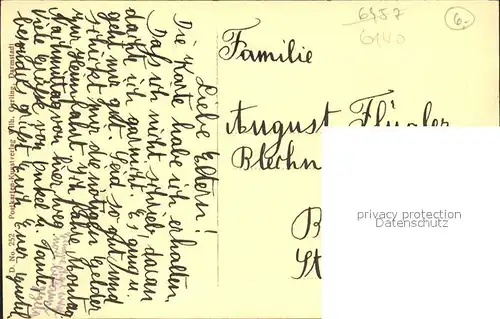 6457
6140
6.
Familie
August Flügler
Blechn
B
St
privacy protection
watermark
Liebe Eltern!
Die Karte habe ich erhalten,
Daß ich nicht schrieb, daran
dachte ich garnicht. Es ging u.
geht mir gut. Seid so gut und
schickt mir die nötigen Gelder
zur Heimfahrt. Ich fahre Montag
Nachmittag von hier weg.
Viele Grüße von Onkel u. Tante,
besonders grüßt Euch Euer
D. No. 252. Postkarten-Kunstverlag Wilh. Gerling, Darmstadt